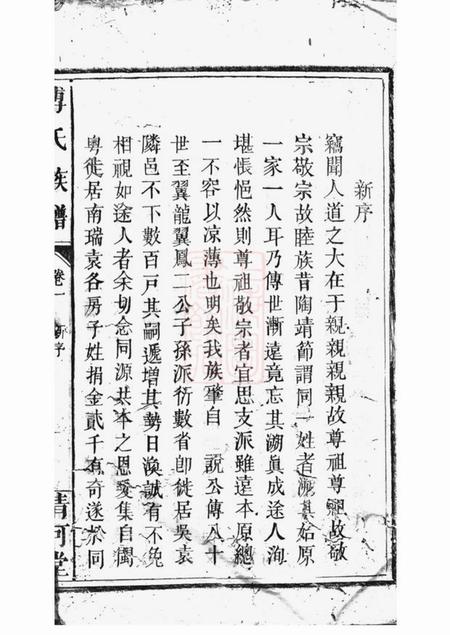 新序
竊聞人道之大在于親親親親故尊祖尊祖故敬
宗敬宗故睦族昔陶靖節謂同一姓者溯其始原
一家一人耳乃傳世漸遠竟忘其溯眞成途人洵
堪悵悒然則尊祖敬宗者宜思支派雖遠本原總
一不容以凉薄也明矣我族肇自 說公傳八十
世至翼龍翼鳳二公子孫派衍數省卽徙居吳袁
隣邑不下數百戶其嗣遞增其勢日渙誠有不免
相視如途人者余切念同源共本之恩爱集自閩
粵徙居南瑞袁各房子姓捐金貳千有奇遂於同
傅氏族譜
卷一 新序
清河堂